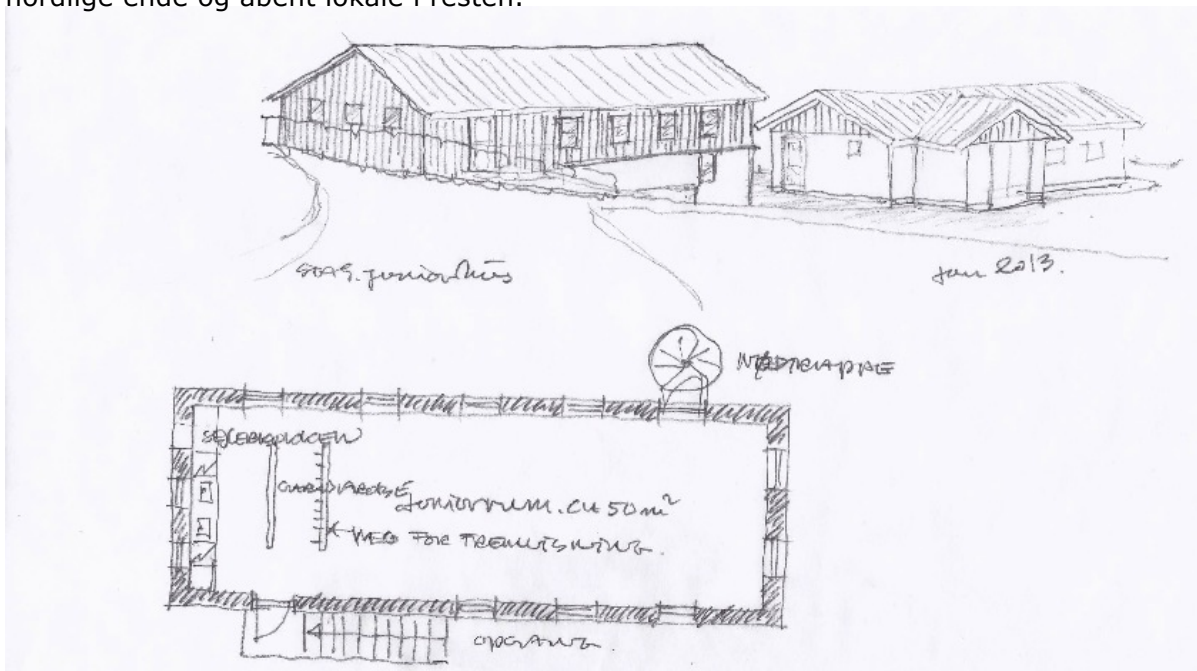 nordlige ende og åbent lokale i resten.
juniorhus
jan 2013.
NØDTRAPPE
GARDEROBE
juniorrum. ca 50 m²
VÆG FOR FREMVISNING.
OPGANG.